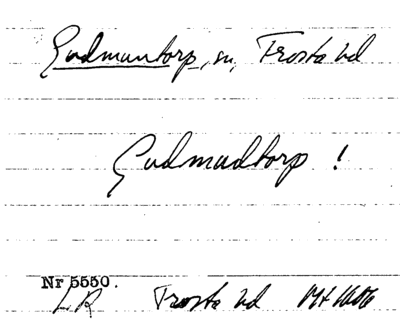 Gudmuntorp, sn, Frosta hd
Gudmudtorp !
Nr 5550.
LR Frosta hd Mt 1606